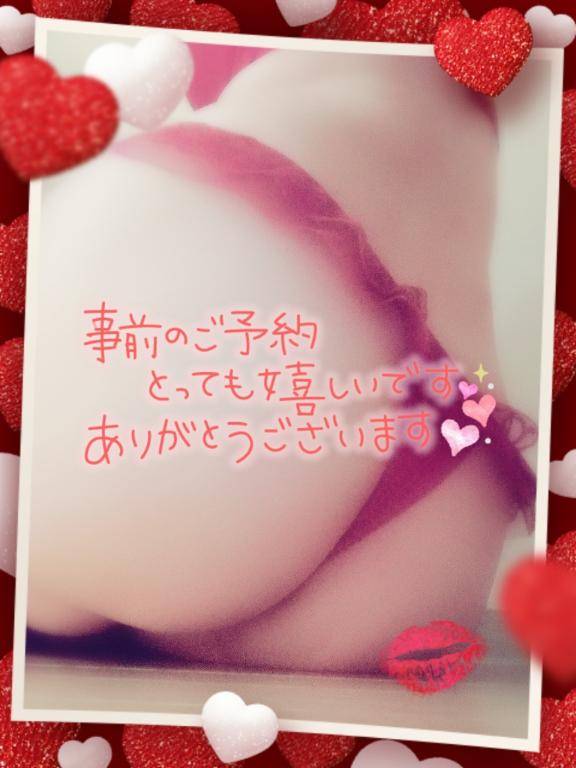 事前のご予約
とっても嬉しいです
ありがとうございます